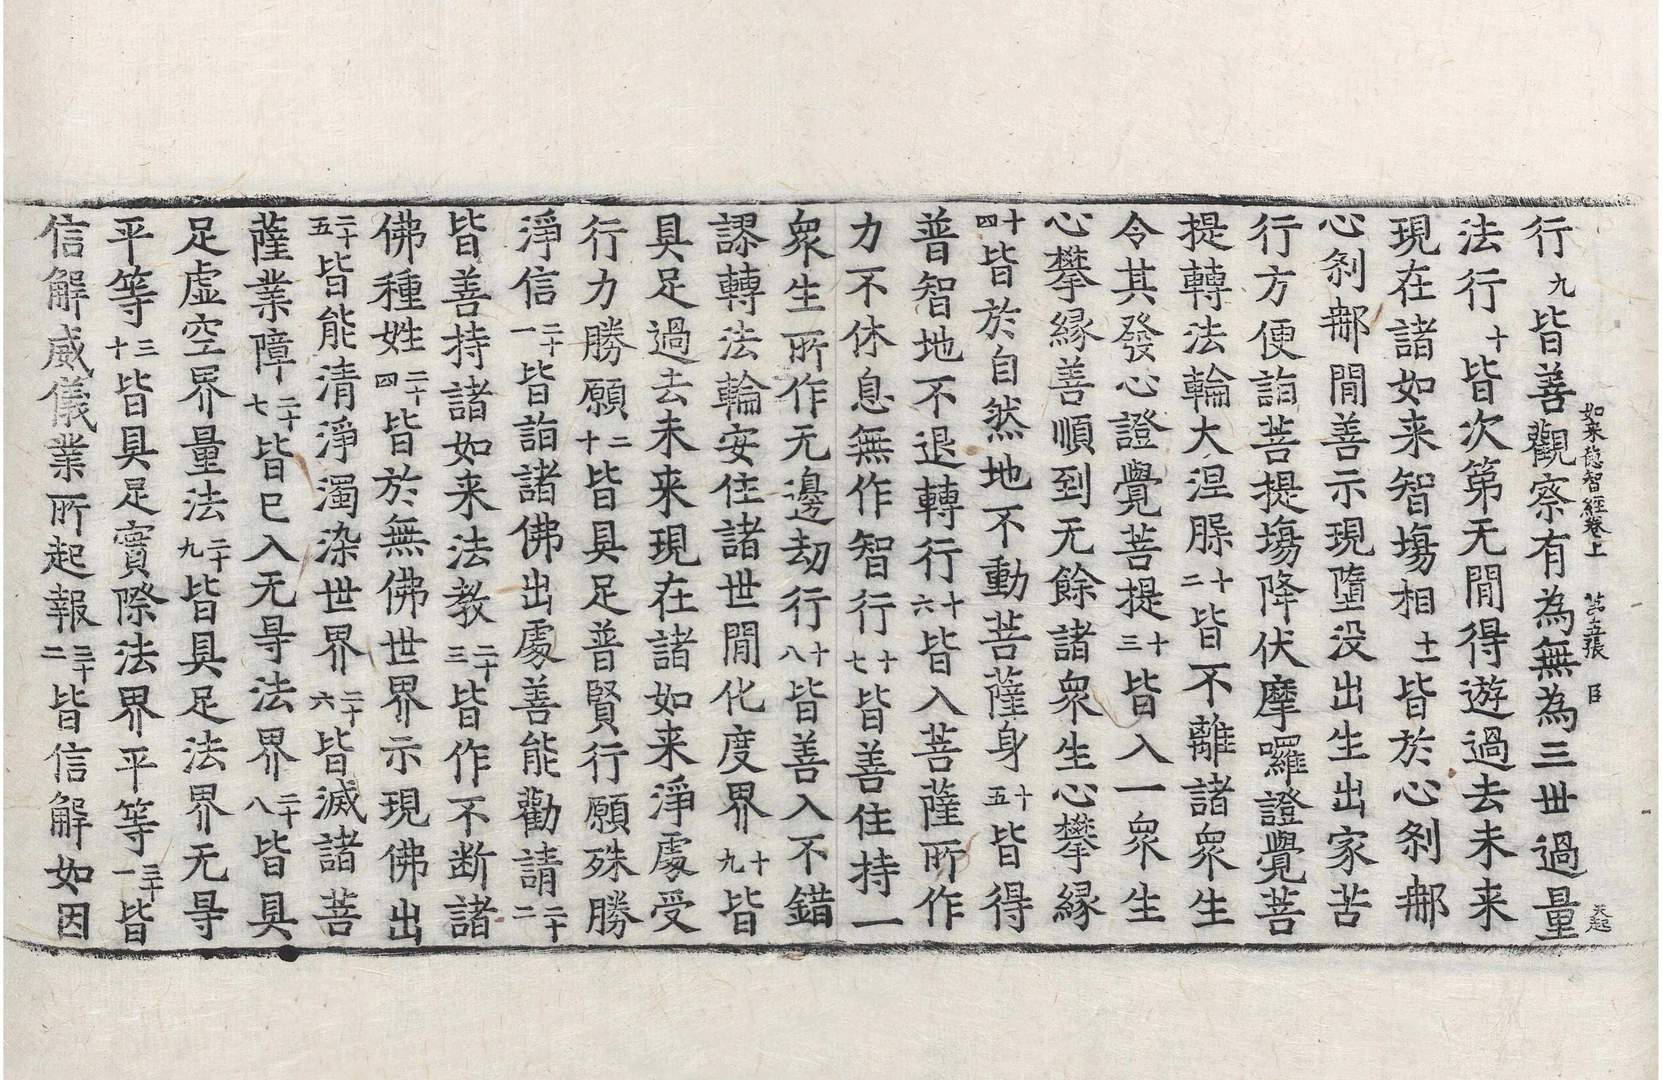 如来徳智經卷上 張 臣 天起
行九皆善觀察有為無為三世過量
法行十皆次第无閒得遊過去未来
現在諸如来智塲相十一皆於心剎郍
心剎郍閒善示現墮没出生出家苦
行方便詣菩提塲降伏摩囉證覺菩
提轉法輪大涅槃十二皆不離諸衆生
令其發心證覺菩提十三皆入一衆生
心攀縁善順到无餘諸衆生心攀縁
十四皆於自然地不動菩薩身十五皆得
普智地不退轉行十六皆入菩薩所作
力不休息無作智行十七皆善住持一
衆生所作无邊刧行十八皆善入不錯
謬轉法輪安住諸世閒化度界十九皆
具足過去未来現在諸如来淨處受
行力勝願二十皆具足普賢行願殊勝
淨信二十一皆詣諸佛出處善能勸請二十二
皆善持諸如来法教二十三皆作不断諸
佛種姓二十四皆於無佛世界示現佛出
二十五皆能清淨濁染世界二十六皆滅諸菩
薩業障二十七皆已入无㝵法界二十八皆具
足虚空界量法二十九皆具足法界无㝵
平等三十皆具足實際法界平等三十一皆
信解威儀業所起報三十二皆信解如因